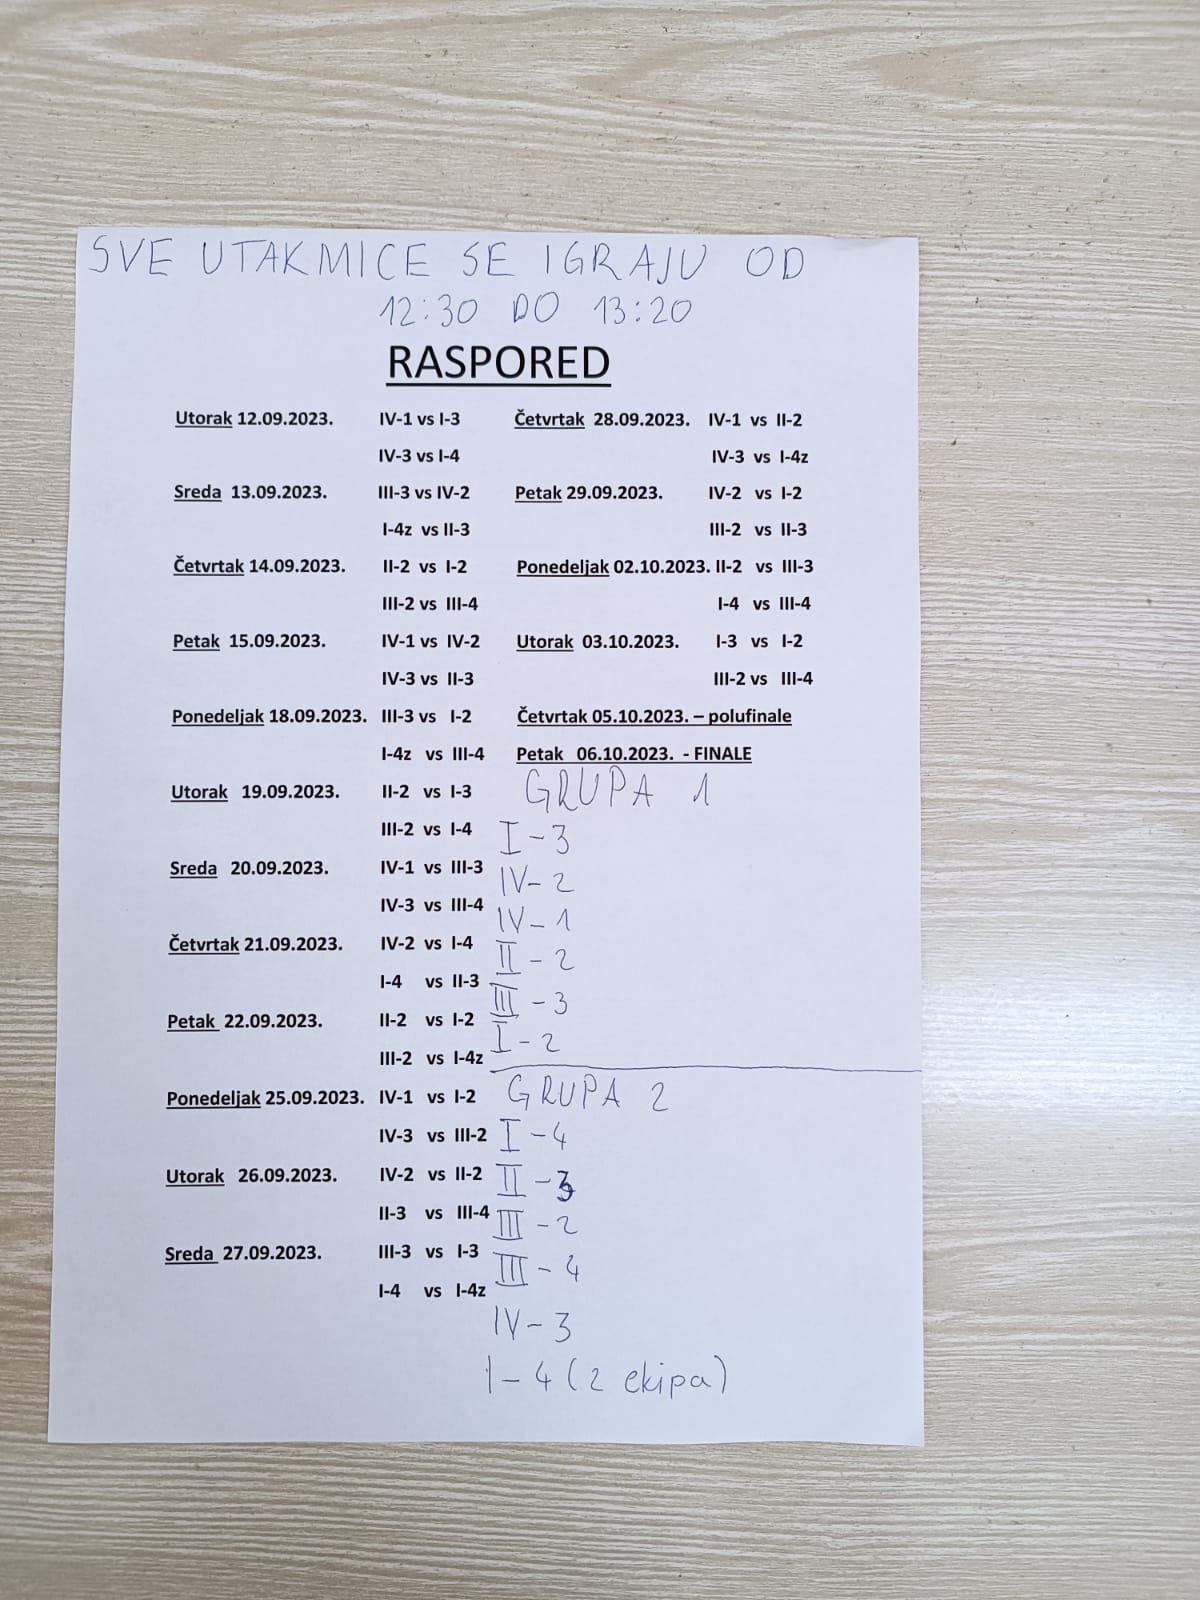 SVE UTAKMICE SE IGRAJU OD
12:30 DO 13:20
RASPORED
Utorak 12.09.2023. IV-1 vs I-3
IV-3 vs I-4
Sreda 13.09.2023. III-3 vs IV-2
I-4z vs II-3
Četvrtak 14.09.2023. II-2 vs I-2
III-2 vs III-4
Petak 15.09.2023. IV-1 vs IV-2
IV-3 vs II-3
Ponedeljak 18.09.2023. III-3 vs I-2
I-4z vs III-4
Utorak 19.09.2023. II-2 vs I-3
III-2 vs I-4
Sreda 20.09.2023. IV-1 vs III-3
IV-3 vs III-4
Četvrtak 21.09.2023. IV-2 vs I-4
I-4 vs II-3
Petak 22.09.2023. II-2 vs I-2
III-2 vs I-4z
Ponedeljak 25.09.2023. IV-1 vs I-2
IV-3 vs III-2
Utorak 26.09.2023. IV-2 vs II-2
II-3 vs III-4
Sreda 27.09.2023. III-3 vs I-3
I-4 vs I-4z
Četvrtak 28.09.2023. IV-1 vs II-2
IV-3 vs I-4z
Petak 29.09.2023. IV-2 vs I-2
III-2 vs II-3
Ponedeljak 02.10.2023. II-2 vs III-3
I-4 vs III-4
Utorak 03.10.2023. I-3 vs I-2
III-2 vs III-4
Četvrtak 05.10.2023. – polufinale
Petak 06.10.2023. - FINALE
GRUPA 1
I-3
IV-2
IV-1
II-2
III-3
I-2
GRUPA 2
I-4
II-3
III-2
III-4
IV-3
I-4 (2 ekipa)